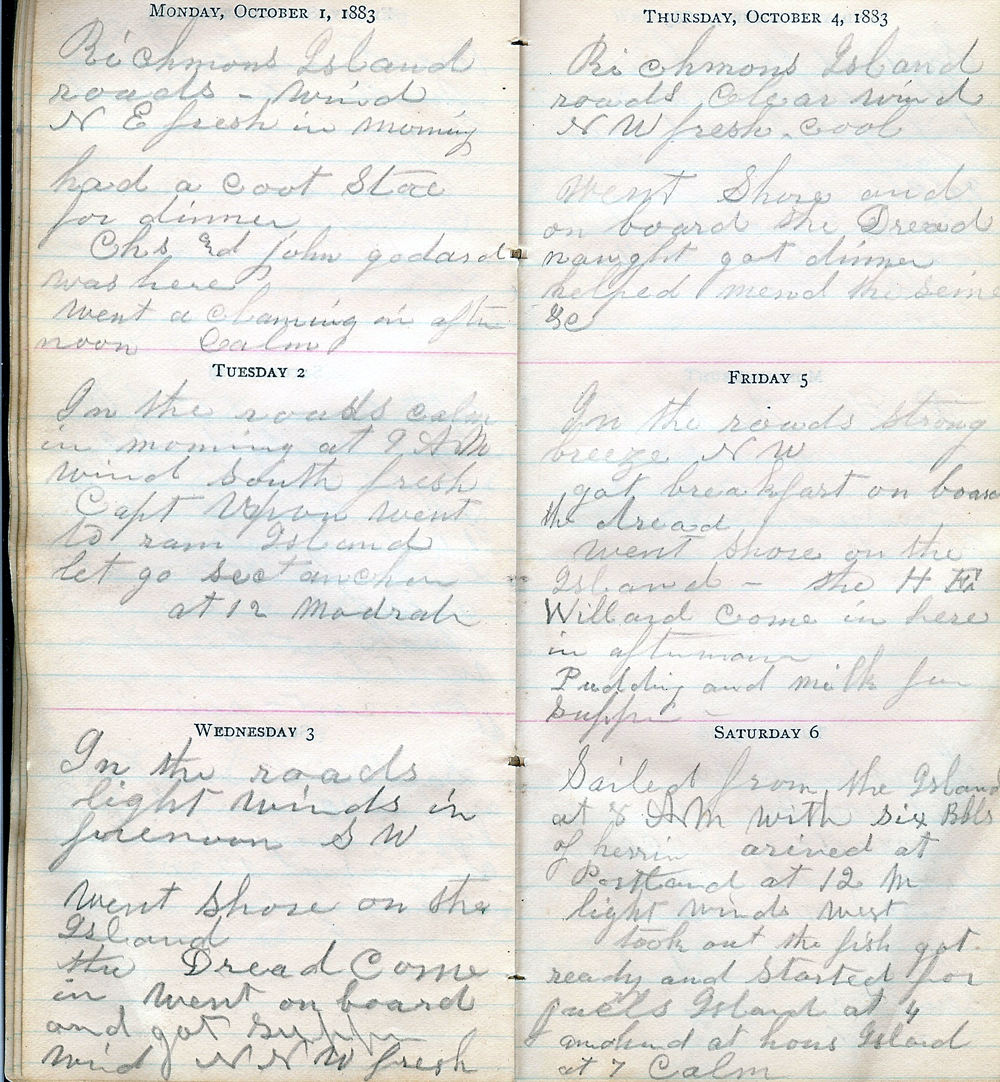 Monday, October 1, 1883
Richmons Island
roads - wind
N E fresh in morning
had a coot Stoe
for dinner
Chs &d john godard
was here
went a claming in after
noon Calm
Tuesday 2
In the roads calm
in morning at 9 AM
wind South fresh
Capt went
to ram Island
let go anchor
at 12
Wednesday 3
In the roads
light winds in
forenoon S W
went Shore on the
Island
the Dread Come
in went on board
and got supper
wind N N W fresh
Thursday, October 4, 1883
Richmons Island
roads Clear wind
N W fresh - cool
Went Shore and
on board the Dread
naught got dinner
helped mend the seine
&c
Friday 5
In the roads strong
breeze N W
got breakfart on board
the dread
went shore on the
Island - the H E
Willard Come in here
in afternoon
Pudding and milk for
supper -
Saturday 6
Sailed from the Island
at 8 AM with six Bbls
of herrin arived at
Portland at 12 M
light winds west
took out the fish got
ready and started for
Island at 4
anchord at hous Island
at 7 Calm